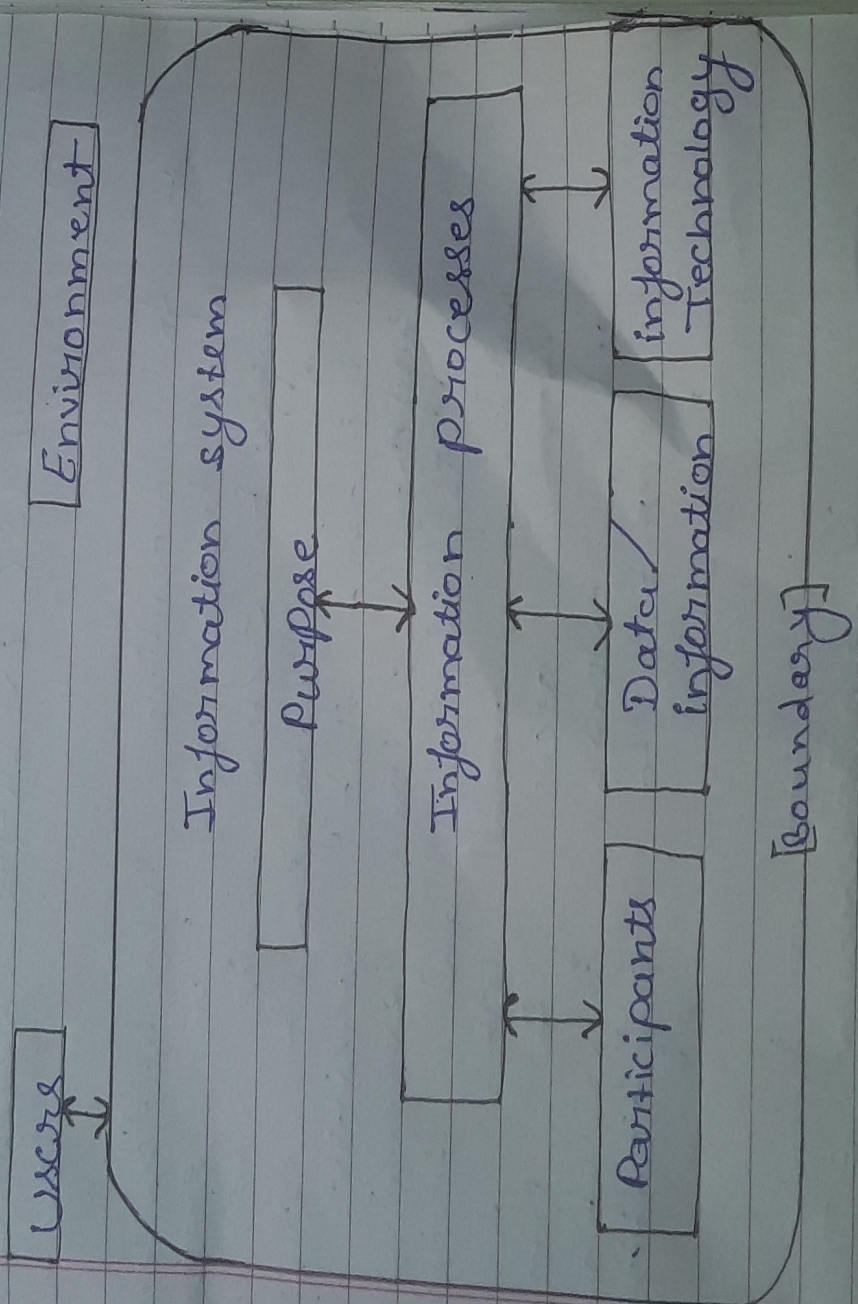 Users
Environment
Information system
Purpose
Information processes
Participants
Data/
information
information
Technology
[Boundary]